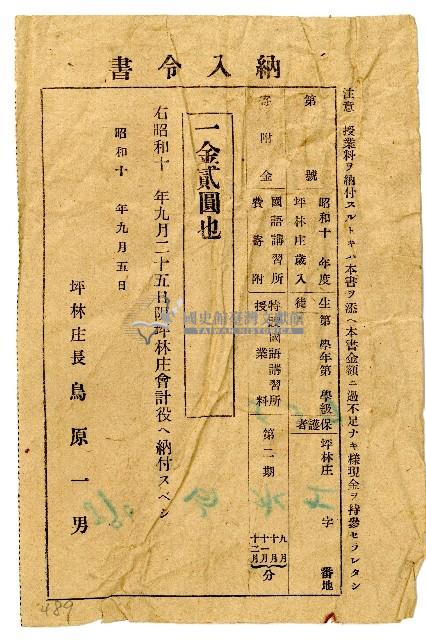 注意 授業料ヲ納付スルトキハ本書ヲ添ヘ本書金額ニ過不足ナキ樣現金ヲ持參セラレタシ
納入令書
第 號
昭和十 年度
生徒 第 學年第 學級
保護者
坪林庄 字 番地
坪林庄歲入
寄附金
國語講習所費寄附
特設國語講習所授業料
第二期
九月
十月
十一月
十二月
分
一金貳圓也
右昭和十 年九月二十五日限坪林庄會計役ヘ納付スベシ
昭和十 年九月五日
坪林庄長 鳥原一男
國史館臺灣文獻館
TAIWAN HISTORICA
489